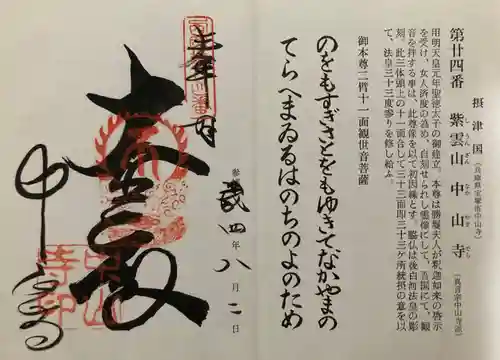 摂津国(兵庫県宝塚市中山寺)
第廿四番 紫雲山中山寺(真言宗中山寺派)
し うん ざん なか やま でら
用明天皇元年聖徳太子の御建立。本尊は勝鬘夫人が釈迦如来の啓示
を受け、女人済度の為め、自刻せられし霊像にして、吾国にて、観
音を拝する事は、此尊像を以て初因縁とす。脇仏は後白河法皇の彫
刻。此三体頭上の十一面合して三十三面即三十三ケ所統摂の意を以
て、法皇三十三度参りを修し給ふ。
御本尊二臂十一面観世音菩薩
のをもすぎさとをもゆきてなかやまの
てらへまゐるはのちのよのため
参
弐四年八月二日
大悲殿
中山寺
中山寺印